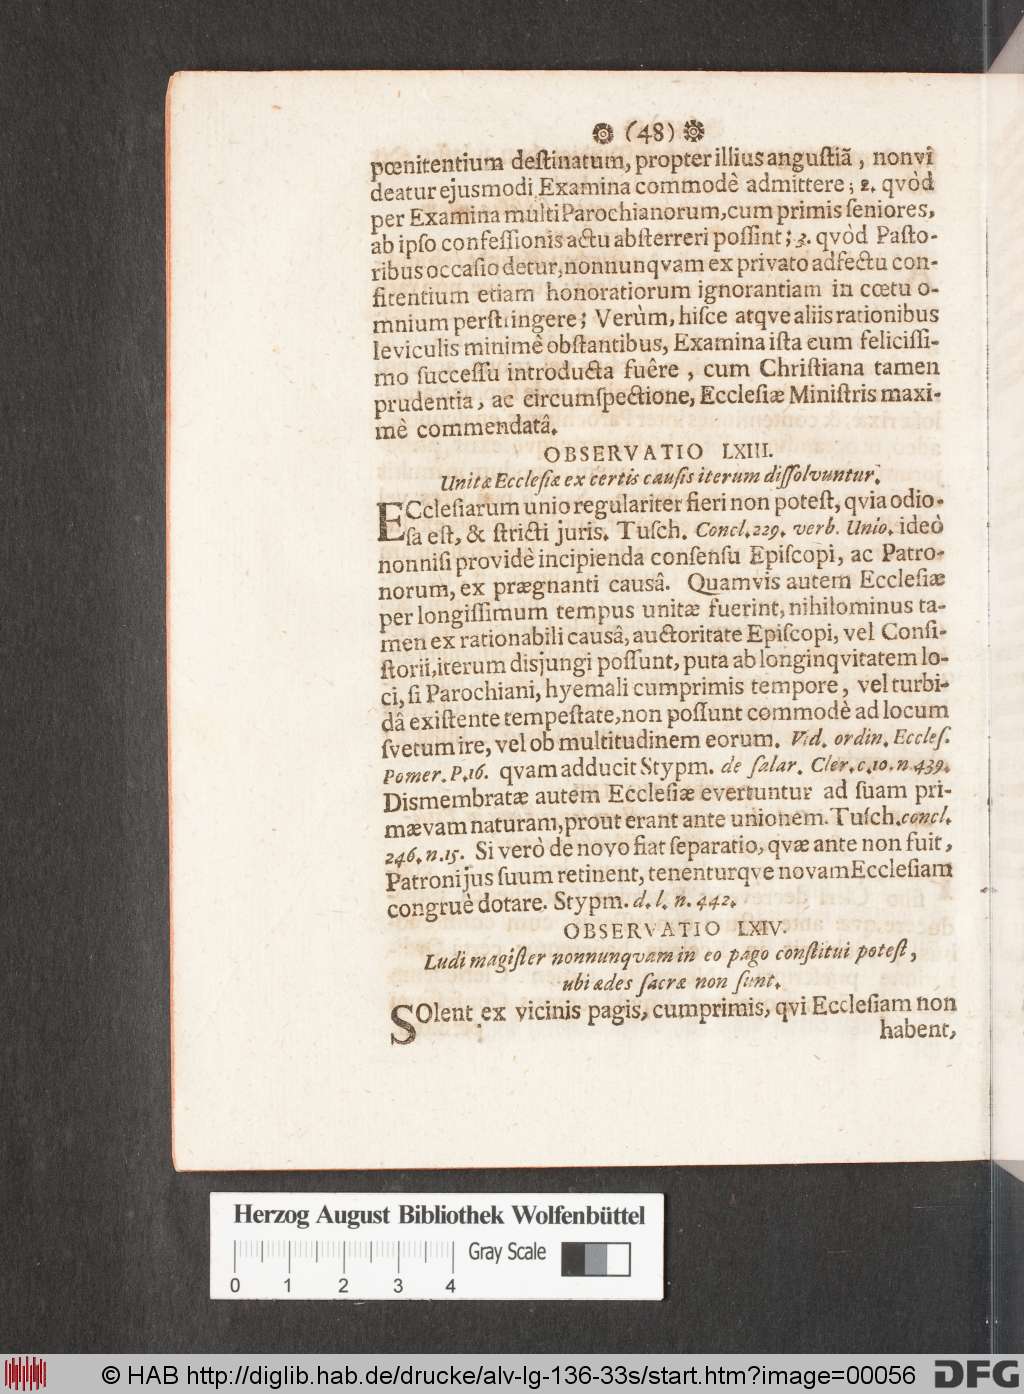 (48)
pœnitentium deſtinatum, propter illius anguſtiã, non vi
deatur ejusmodi Examina commodè admittere; 2. qvòd
per Examina multi Parochianorum, cum primis ſeniores,
ab ipſo confeſſionis actu abſterreri poſſint; 3. qvòd Paſto-
ribus occaſio detur, nonnunqvam ex privato adfectu con-
fitentium etiam honoratiorum ignorantiam in cœtu o-
mnium perſtringere; Verùm, hiſce atqve aliis rationibus
leviculis minimè obſtantibus, Examina iſta cum feliciſſi-
mo ſucceſſu introducta fuêre, cum Chriſtiana tamen
prudentia, ac circumſpectione, Eccleſiæ Miniſtris maxi-
mè commendatâ.
OBSERVATIO LXIII.
Unitæ Eccleſiæ ex certis cauſis iterum diſſolvuntur.
ECcleſiarum unio regulariter fieri non poteſt, qvia odio-
ſa eſt, & ſtricti juris. Tuſch. Concl. 229. verb. Unio. ideò
nonniſi providè incipienda conſenſu Epiſcopi, ac Patro-
norum, ex prægnanti causâ. Quamvis autem Eccleſiæ
per longiſſimum tempus unitæ fuerint, nihilominus ta-
men ex rationabili causâ, auctoritate Epiſcopi, vel Conſi-
ſtorii, iterum disjungi poſſunt, puta ab longinqvitatem lo-
ci, ſi Parochiani, hyemali cumprimis tempore, vel turbi-
dâ exiſtente tempeſtate, non poſſunt commodè ad locum
ſvetum ire, vel ob multitudinem eorum. Vid. ordin. Eccleſ.
Pomer. P. 16. qvam adducit Stypm. de ſalar. Cler. c. 10. n. 439.
Dismembratæ autem Eccleſiæ evertuntur ad ſuam pri-
mævam naturam, prout erant ante unionem. Tuſch. concl.
246. n. 15. Si verò de novo fiat ſeparatio, qvæ ante non fuit,
Patroni jus ſuum retinent, tenenturqve novam Eccleſiam
congruè dotare. Stypm. d. l. n. 442.
OBSERVATIO LXIV.
Ludi magiſter nonnunqvam in eo pago conſtitui poteſt,
ubi ædes ſacræ non ſunt.
SOlent ex vicinis pagis, cumprimis, qvi Eccleſiam non
habent,
Herzog August Bibliothek Wolfenbüttel
Gray Scale
0 1 2 3 4
© HAB http://diglib.hab.de/drucke/alv-lg-136-33s/start.htm?image=00056
DFG